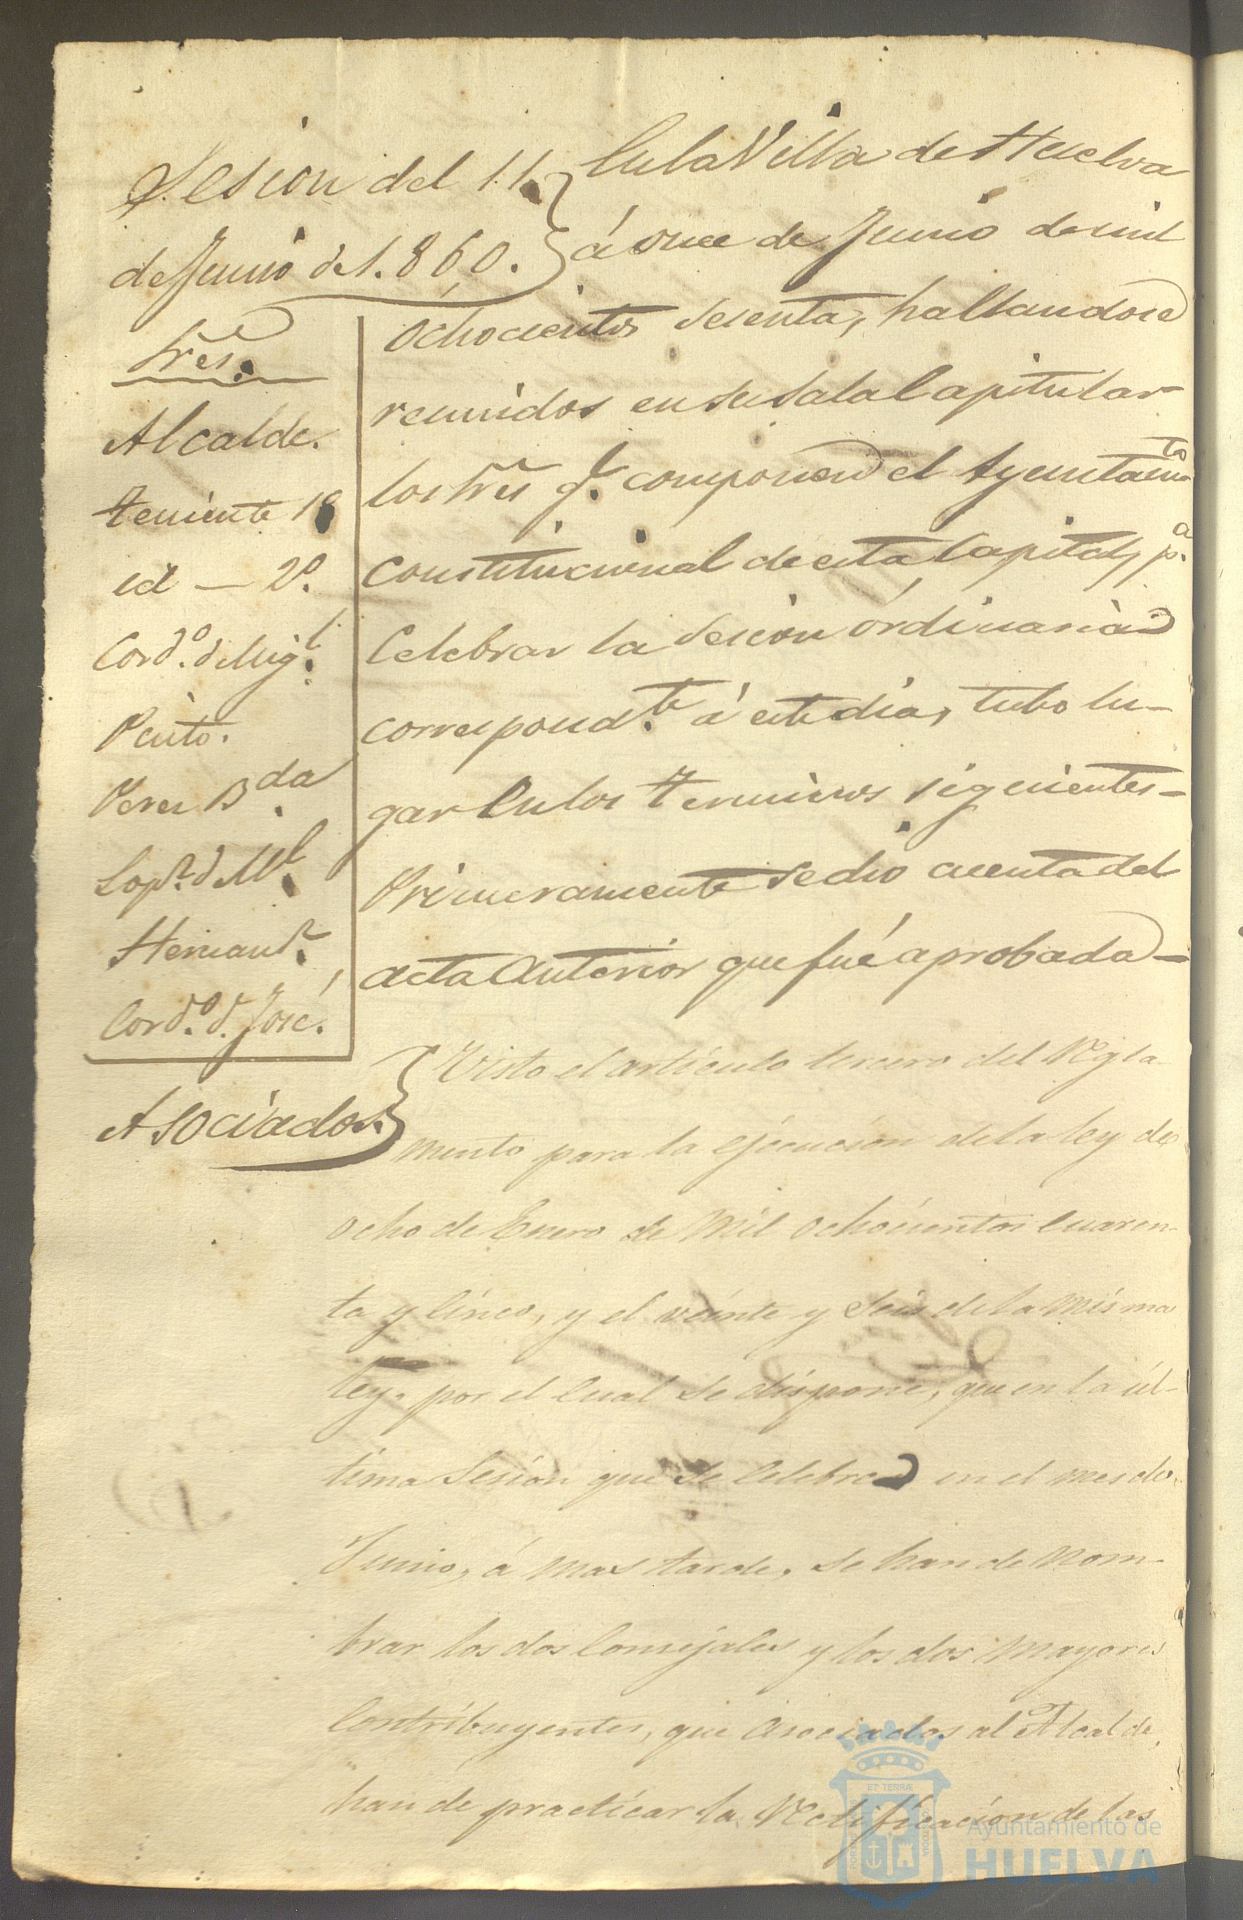 Sesion del 11
de Junio de 1.860.
Sres.
Alcalde.
teniente 1º
id — 2º.
Cordº. d. Migl.
Perez Bda
Lopz. d. Ml.
Hernandz.
Cordº. d. José.
Asociados.
En la Villa de Huelva
á once de Junio de mil
ochocientos sesenta, hallandose
reunidos en su Sala Capitular
los Sres q. componen el Ayuntamto
Constitucional de esta Capital, pa.
Celebrar la Sesion órdinaria
correspondte. á este dia, tubo lu-
gar en los terminos siguientes-
Primeramente se dio cuenta del
acta anterior que fué aprobada-
Visto el artículo tercero del Regla-
mento para la ejecucion de la ley de
ocho de Enero de Mil ochocientos cuaren-
ta y cinco, y el veinte y seis de la misma
ley, por el cual se dispone, que en la úl-
tima Sesion que se celebre en el mes de
Junio, á mas tarde, se han de nom-
brar los dos Consejales y los dos mayores
Contribuyentes, que asociados al Alcalde,
han de practicar la Rectificacion de las
Ayuntamiento de
HUELVA